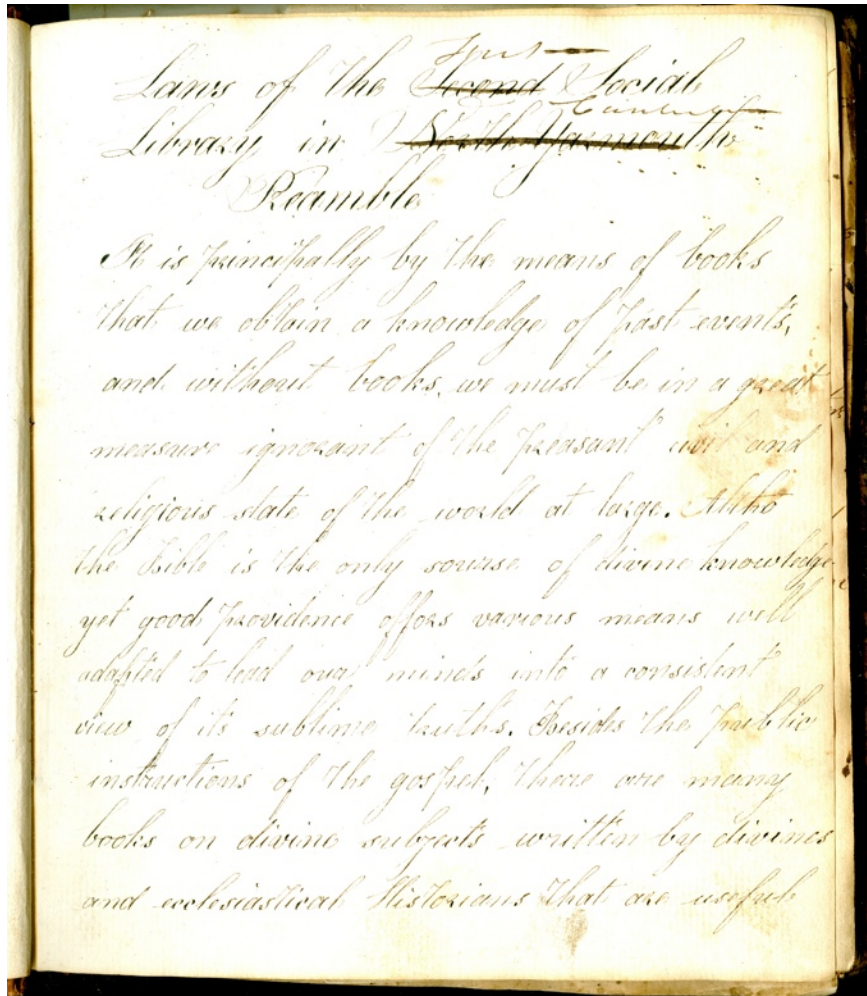 First
Laws of the Second Social
Library in North Yarmouth
Preamble
It is principally by the means of books
that we obtain a knowledge of past events,
and without books, we must be in a great
measure ignorant of the preasant civil and
religious state of the world at large. Altho
the Bible is the only sourse of divine knowledge
yet good providence offors various means well
adapted to lead our minds into a consistent
view of its sublime truths. Besides the public
instructions of the gospel, there are many
books on divine subjects written by divines
and ecclesiastical Historians that are useful